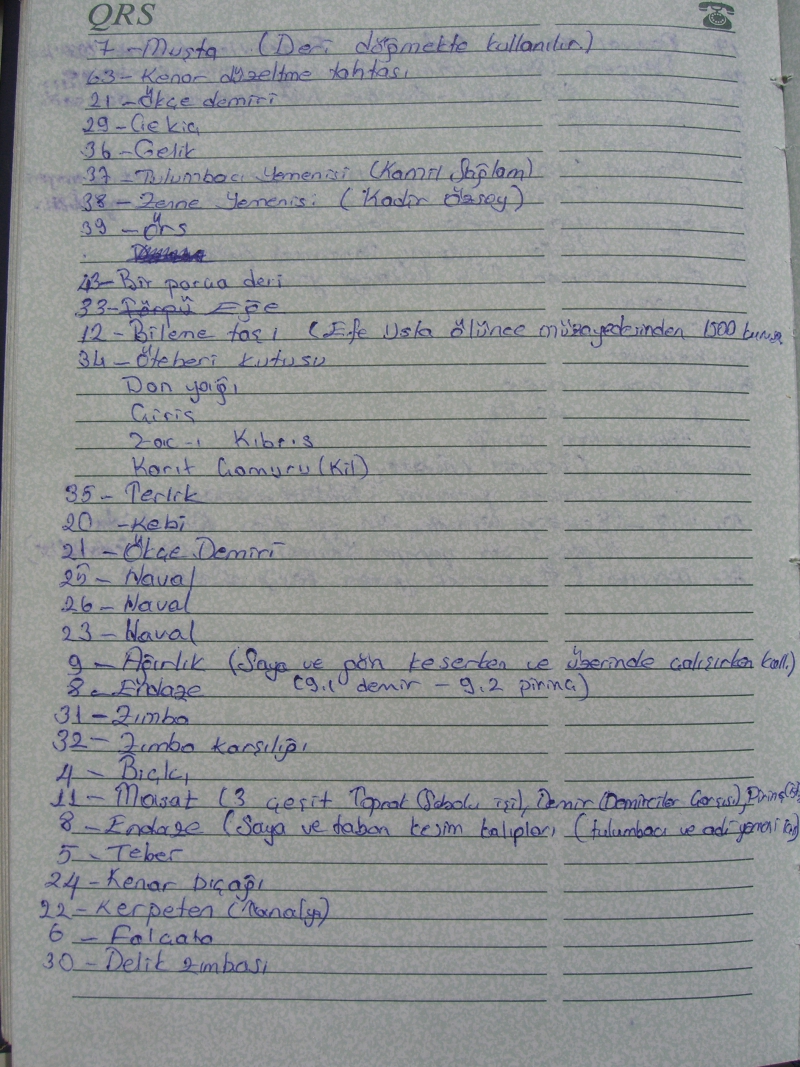 QRS
7-Muşta (Deri döğmekte kullanılır)
63-Kenar düzeltme tahtası
21-Ökçe demiri
29-Çekiç
36-Çelik
37-Tulumbacı Yemenisi (Kamil Sağlam)
38-Zenne Yemenisi (Kadir Özsoy)
39-Örs
43-Bir parça deri
33-Törpü Eğe
12-Bileme taşı (Efe Usta ölünce müzayedesinden 1500
34-Öteberi kutusu
Don yağı
Çiriş
Zac-ı Kıbrıs
Karıt Çamuru (Kil)
35-Terlik
20-Kebi
21-Ökçe Demiri
25-Naval
26-Naval
23-Naval
9-Ağırlık (Saya ve gön keserken ve üzerinde çalışırken kull.)
8-Endaze (9.1 demir - 9.2 pirinç)
31-Zımba
32-Zımba karşılığı
4-Bıçkı
11-Masat (3 çeşit Toprak işi), Demir (Demirciler Çarşısı), Pirinç
8-Endaze (Saya ve taban kesim kalıpları (tulumbacı ve adi yemeni
5-Teber
24-Kenar bıçağı
22-Kerpeten
6-Falçata
30-Delik zımbası